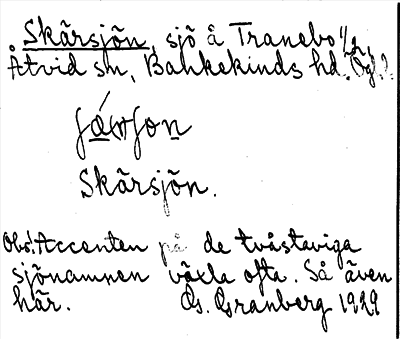 Skärsjön, sjö å Tranebo
Åtvid sn, Bankekinds hd. Ög.
Skärsjön.
Obs! Accenten på de tvåstaviga
sjönamnen växla ofta. Så även
här. G. Granberg 1929